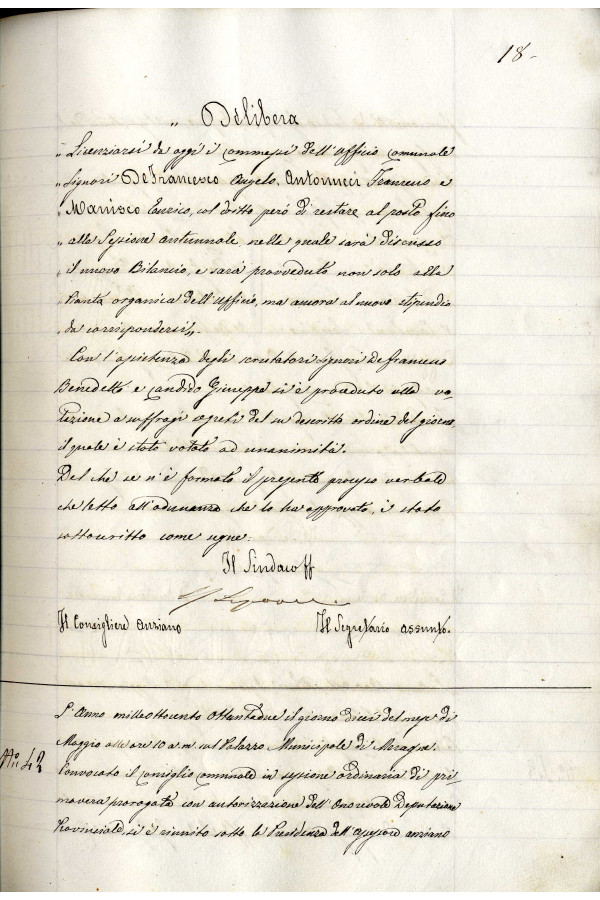 18-
„ Delibera
„ Licenziarsi da oggi i commessi dell'Ufficio comunale
„ Signori De Francesco Angelo, Antonucci Francesco e
„ Manisco Enrico, col dritto peró di restare al posto fino
„ alla Sessione autunnale, nella quale sará discusso
„ il nuovo Bilancio, e sará provveduto non solo alla
„ Pianta organica dell'Ufficio, ma ancora al nuovo stipendio
„ da corrispondersi„.
Con l'assistenza degli scrutatori Signori De Francesco
Benedetto e Candido Giuseppe si è proceduto alla vo-
tazione a suffragi segreti del su descritto ordine del giorno,
il quale è stato votato ad unanimità.
Del che se n'è formato il presente processo verbale
che letto all'adunanza che lo ha approvato, è stato
sottoscritto come segue:
Il Sindaco ff
Il Consigliere anziano Il Segretario assunto.
L'Anno milleottocento Ottantadue il giorno dieci del mese di
Maggio alle ore 10 a.m. nel Palazzo Municipale di
No: 42 Convocato il Consiglio comunale in sessione ordinaria di pri-
mavera prorogata con autorizzazione dell'Onorevole Deputazione
Provinciale, si è riunito sotto la Presidenza dell'Assessore anziano